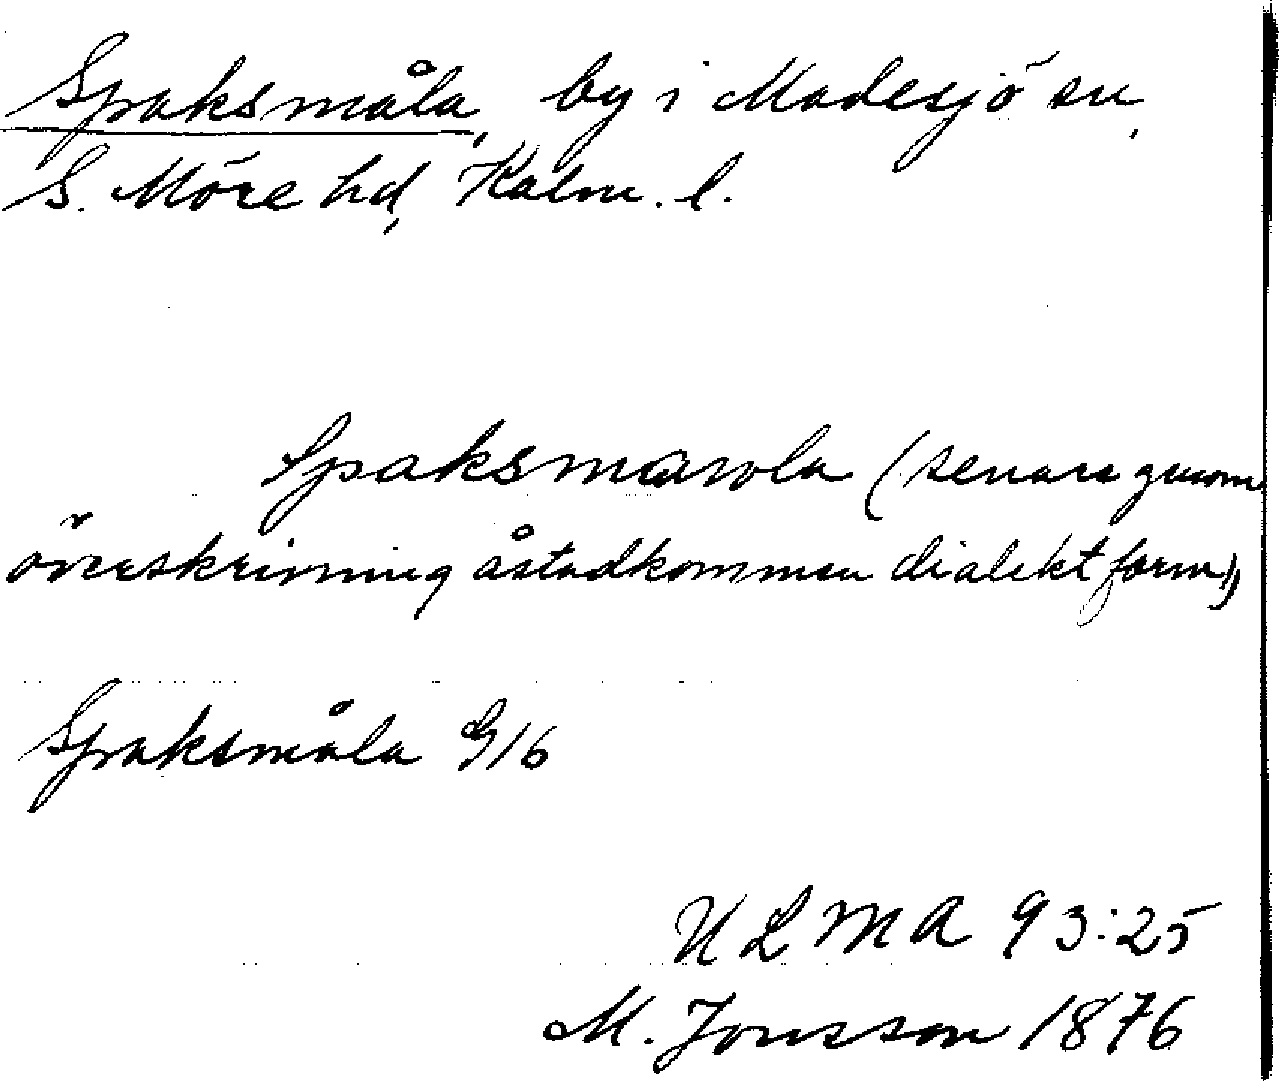 Spaksmåla, by i Madesjö sn,
S. Möre hd, Kalm. l.
Spaksmawla (senare genom
överskrivning åstadkommen dialektform),
Spaksmåla G16
ULMA 93:25
M. Jonsson 1876